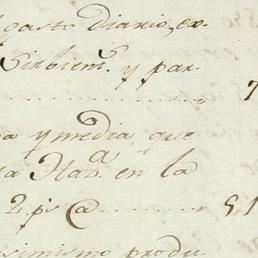 gasto Diario, ex-
Sirbiem.s y par-
7
a y media, que
a Haz.a en la
2. p.s @ 51
simismo produ-